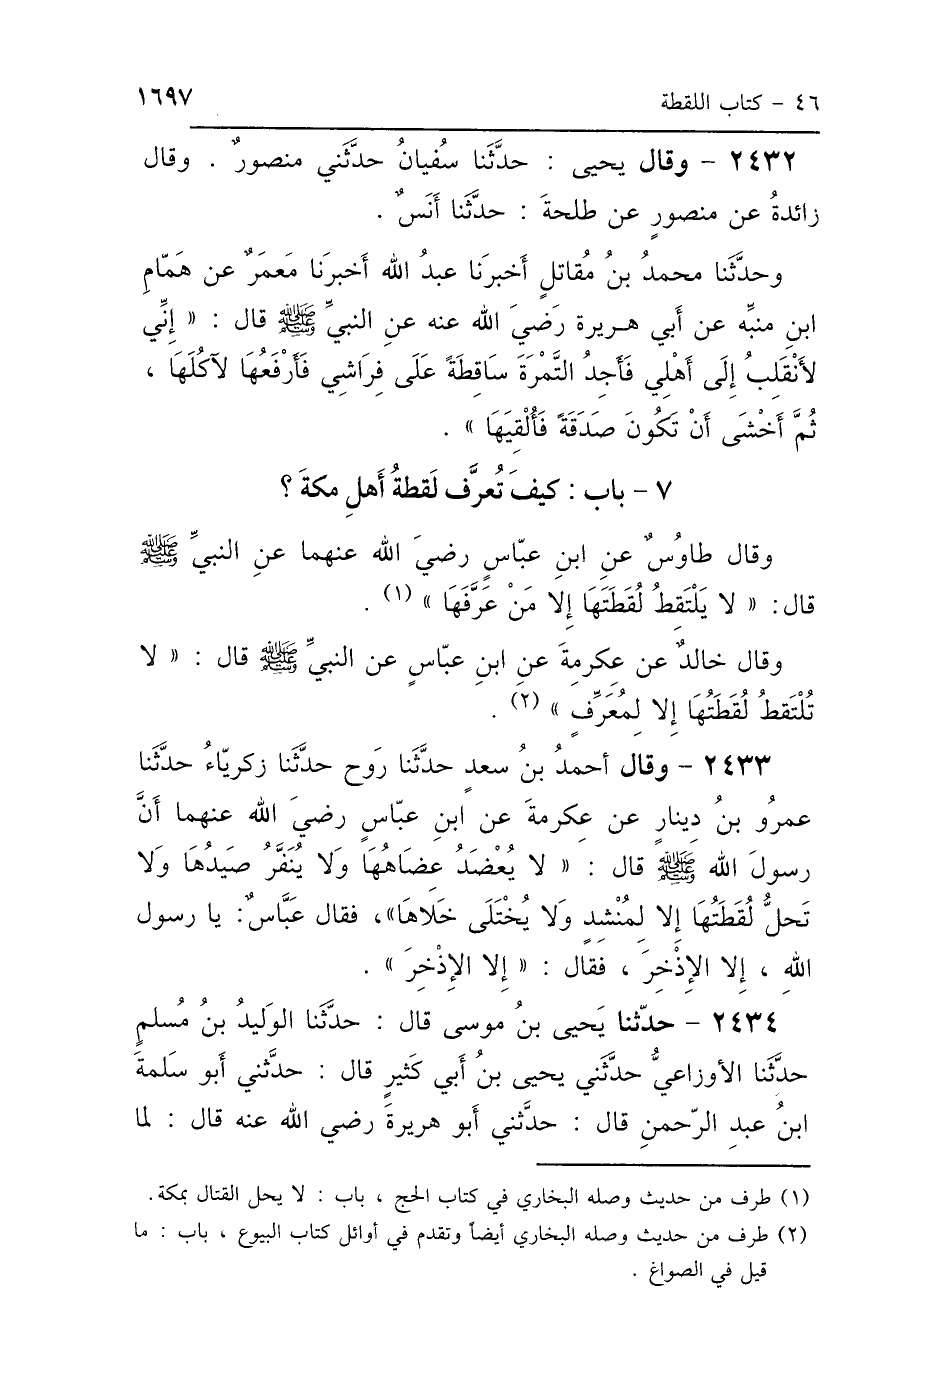 ٤٦ - كتاب اللقطة ١٦٩٧
٢٤٣٢ - وقال يحيى : حدَّثَنا سُفيانُ حدَّثَني منصورٌ . وقال
زائدةُ عن منصورٍ عن طلحةَ : حدَّثَنا أَنَسٌ .
وحدَّثَنا محمدُ بنُ مُقاتلٍ أخبرَنا عبدُ الله أخبرَنا مَعمَرٌ عن هَمّامِ
ابنِ منبِّه عن أَبي هريرة رَضيَ الله عنه عنِ النبيِّ ﷺ قال : « إِنِّي
لأَنْقَلِبُ إِلَى أَهْلِي فَأَجِدُ التَّمْرَةَ سَاقِطَةً عَلَى فِرَاشِي فَأَرْفَعُهَا لآكُلَهَا ،
ثُمَّ أَخْشَى أَنْ تَكُونَ صَدَقَةً فَأُلْقِيَهَا » .
٧ - باب : كيفَ تُعرَّف لَقطةُ أَهلِ مكةَ ؟
وقال طاوُسٌ عنِ ابنِ عبّاسٍ رضيَ الله عنهما عنِ النبيِّ ﷺ
قال: « لا يَلْتَقِطُ لُقَطَتَهَا إِلا مَنْ عَرَّفَهَا » (١) .
وقال خالدٌ عن عِكرِمةَ عنِ ابنِ عبّاسٍ عنِ النبيِّ ﷺ قال : « لا
تُلْتَقَطُ لُقَطَتُهَا إِلا لِمُعَرِّفٍ » (٢) .
٢٤٣٣ - وقال أحمدُ بنُ سعدٍ حدَّثَنا رَوح حدَّثَنا زكريّاءُ حدَّثَنا
عمرُو بنُ دِينارٍ عن عِكرمةَ عن ابنِ عبّاسٍ رضيَ الله عنهما أنَّ
رسولَ الله ﷺ قال : « لا يُعْضَدُ عِضَاهُهَا وَلا يُنَفَّرُ صَيدُهَا وَلا
تَحلُّ لُقَطَتُهَا إِلا لمُنْشِدٍ وَلا يُخْتَلَى خَلاهَا»، فقال عَبَّاسٌ: يا رسول
اللهِ ، إِلا الإِذْخِرَ ، فقال : « إِلا الإِذْخِرَ » .
٢٤٣٤ - حدّثنا يَحيى بنُ موسى قال : حدَّثَنا الوَليدُ بنُ مُسلمٍ
حدَّثَنا الأوزاعيُّ حدَّثَني يحيى بنُ أَبي كَثيرٍ قال : حدَّثني أبو سَلمةَ
ابنُ عبدِ الرّحمنِ قال : حدَّثني أَبو هريرةَ رضي الله عنه قال : لما
(١) طرف من حديث وصله البخاري في كتاب الحج ، باب : لا يحل القتال بمكة .
(٢) طرف من حديث وصله البخاري أيضاً وتقدم في أوائل كتاب البيوع ، باب : ما
قيل في الصواغ .